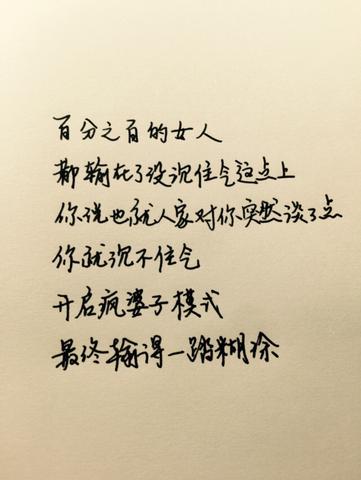 百分之百的女人
都输在了没沉住气这点上
你说也就人家对你突然淡了点
你就沉不住气
开启疯婆子模式
最终输得一踏糊涂